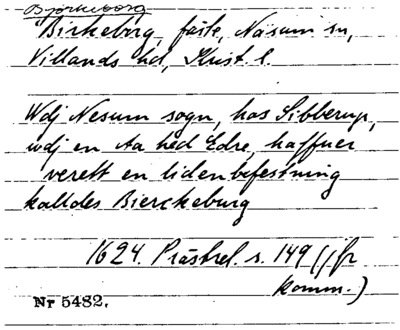 Björkeborg
Birkeborg, fäste, Näsum sn,
Villands hd, Krist. l.
Wdj Nesum sogn, hos Sibberup,
wdj en Aa hed Edre, haffuer
verett en liden befestning
kalldes Bierckeburg
1624. Prästrel. s. 149 (jfr
komm.)
Nr 5482.